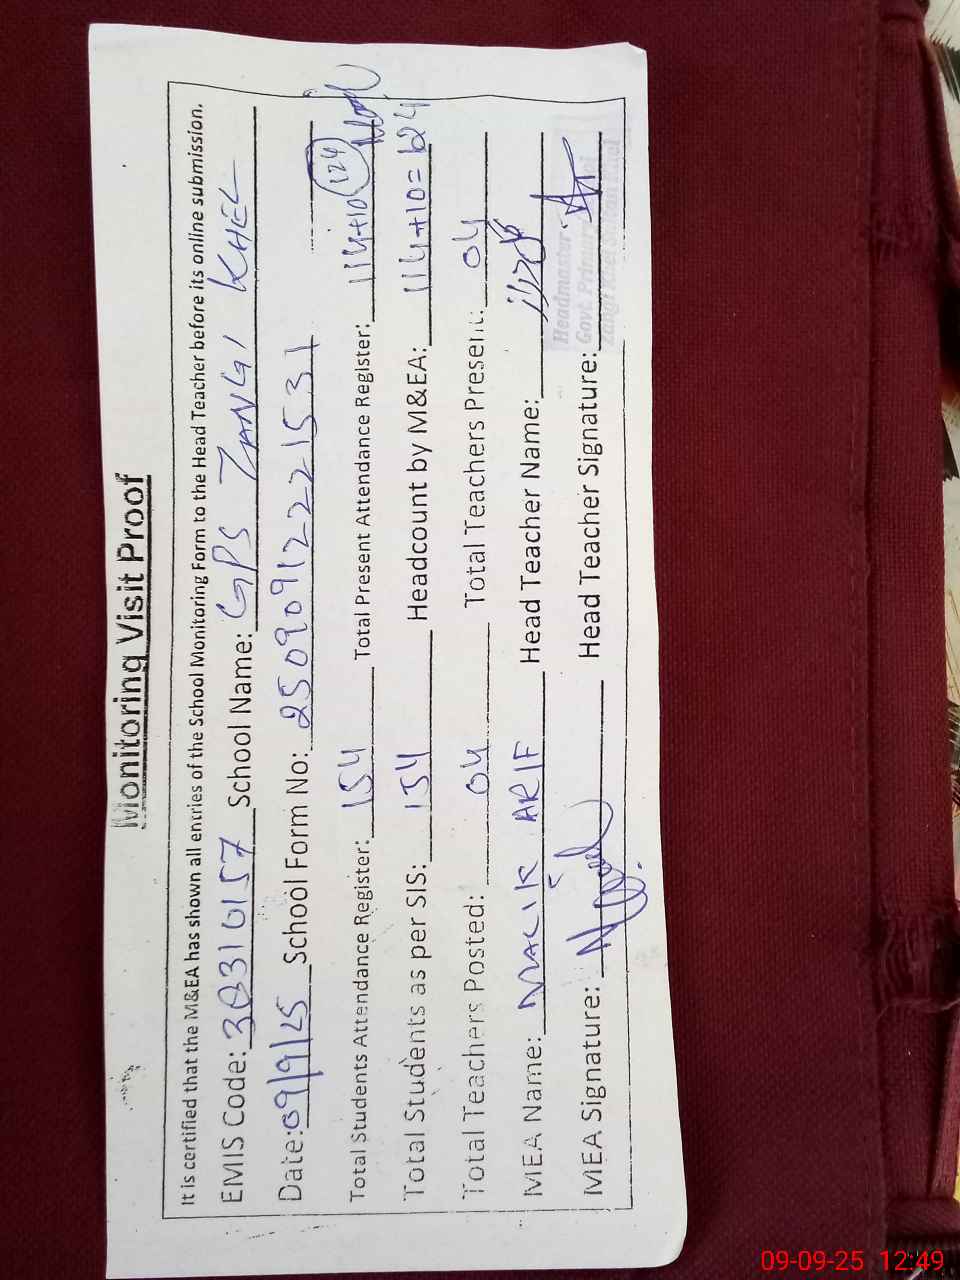 Monitoring Visit Proof
It is certified that the M&EA has shown all entries of the School Monitoring Form to the Head Teacher before its online submission.
EMIS Code: 30310157 School Name: GPS ZANGI KHEL
Date: 09/9/25 School Form No: 25090912221531
Total Students Attendance Register: 154 Total Present Attendance Register: 114+10 124
Total Students as per SIS: 154 Headcount by M&EA: 114+10=124
Total Teachers Posted: 04 Total Teachers Present: 04
MEA Name: MALIK ARIF Head Teacher Name:
MEA Signature: Head Teacher Signature:
Headmaster
Govt. Primary
Zangi Khel
09-09-25 12:49